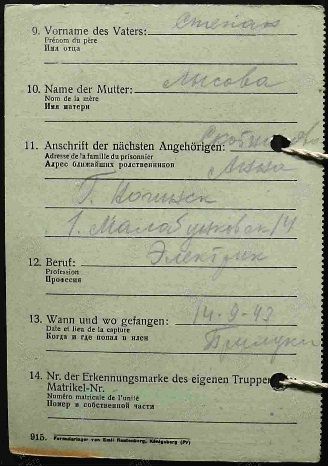 9. Vorname des Vaters: Степан
Prénom du père
Имя отца
10. Name der Mutter: Лысова
Nom de la mère
Имя матери
11. Anschrift der nächsten Angehörigen:
Adresse de la famille du prisonnier Анна
Адрес ближайших родственников
Г. Ногинск
12. Beruf: Электрик
Profession
Профессия
13. Wann und wo gefangen: 14-9-43
Date et lieu de la capture
Когда и где попал в плен
14. Nr. der Erkennungsmarke des eigenen Truppen
Matrikel-Nr.
Numéro matricule de l'unité
Номер в собственной части
915. Formularlager von Emil Rautenberg, Königsberg (Pr)